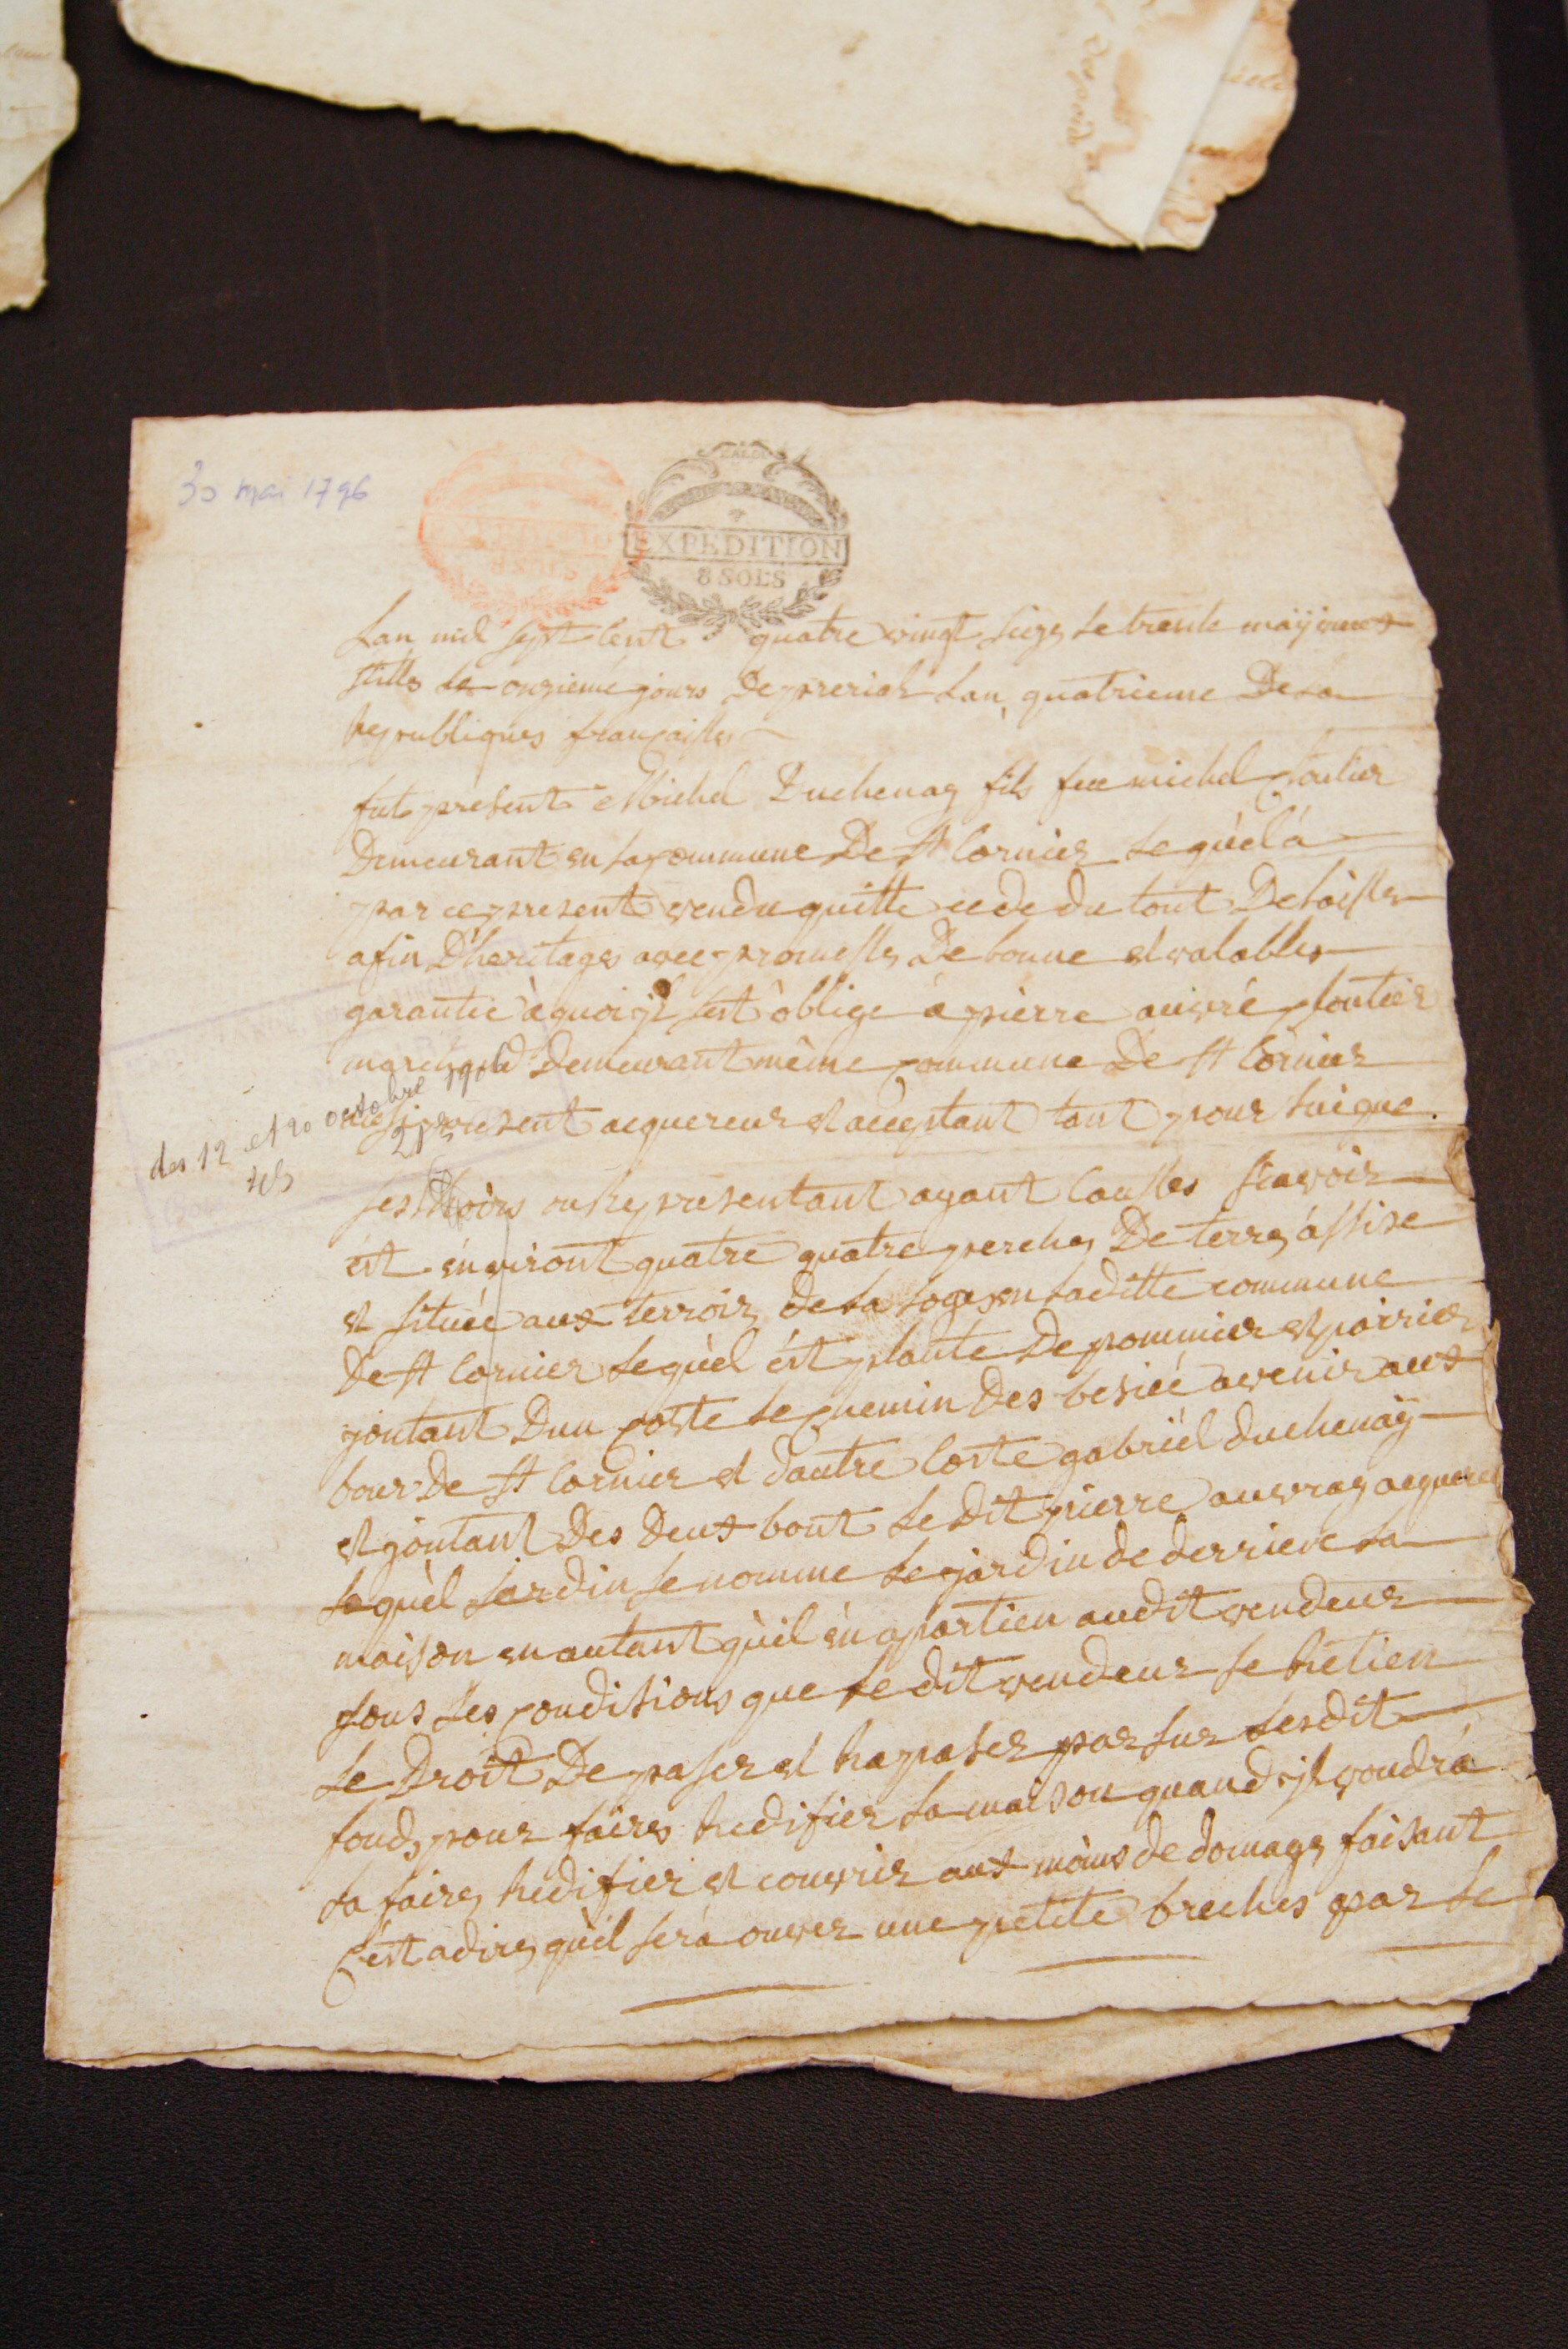 30 mai 1796
EXPEDITION
8 SOLS
EXPEDITION
8 SOLS
Lan mil sept Cent quatre vingt seize le trente maÿ
stille le onzieme jours de prerial Lan quatrieme De La
Republiques françaisse
fut present Michel Duchenay fils feu michel
Demeurant en La commune De St Cornier Lequèl à
par ce present vendu quitte cede du tout Delaisse
afin D'heritages avec promesse De bonne et valables
garantie à quoi jl sest òblige à pièrre auvré
marchand Demeurant même commune De St Cornier
present acquereur et acceptant tant pour lui que
des 12 et 20 octobre
ses hoirs ou Representant ayant Causses scavoir
est environt quatre quatre perches De terre assise
et située aux terroir de La Loges en Laditte commune
De St Cornier Lequèl ést plante De pommier et poirier
joutant Dun coste Le chemin Des avenir aux
bour De St Cornier et dautre Coste gabriël duchenaÿ
et joutant Des Deux bout Le Dit pierre auvray acquereu
Lequèl Jardin se nomme Le jardin de derriere La
maison en autant qùil en apartien audit vendeur
sous Les conditions que Le dit vendeur se Retien
Le Droit De paser et Rapaser par sur Lesdit
fond pour faire Redifier La maison quand jl voudrà
La faire Redifier et couvrir aux moins de domage faisant
Cest a dire qùil serà ouver une petite breches par Le